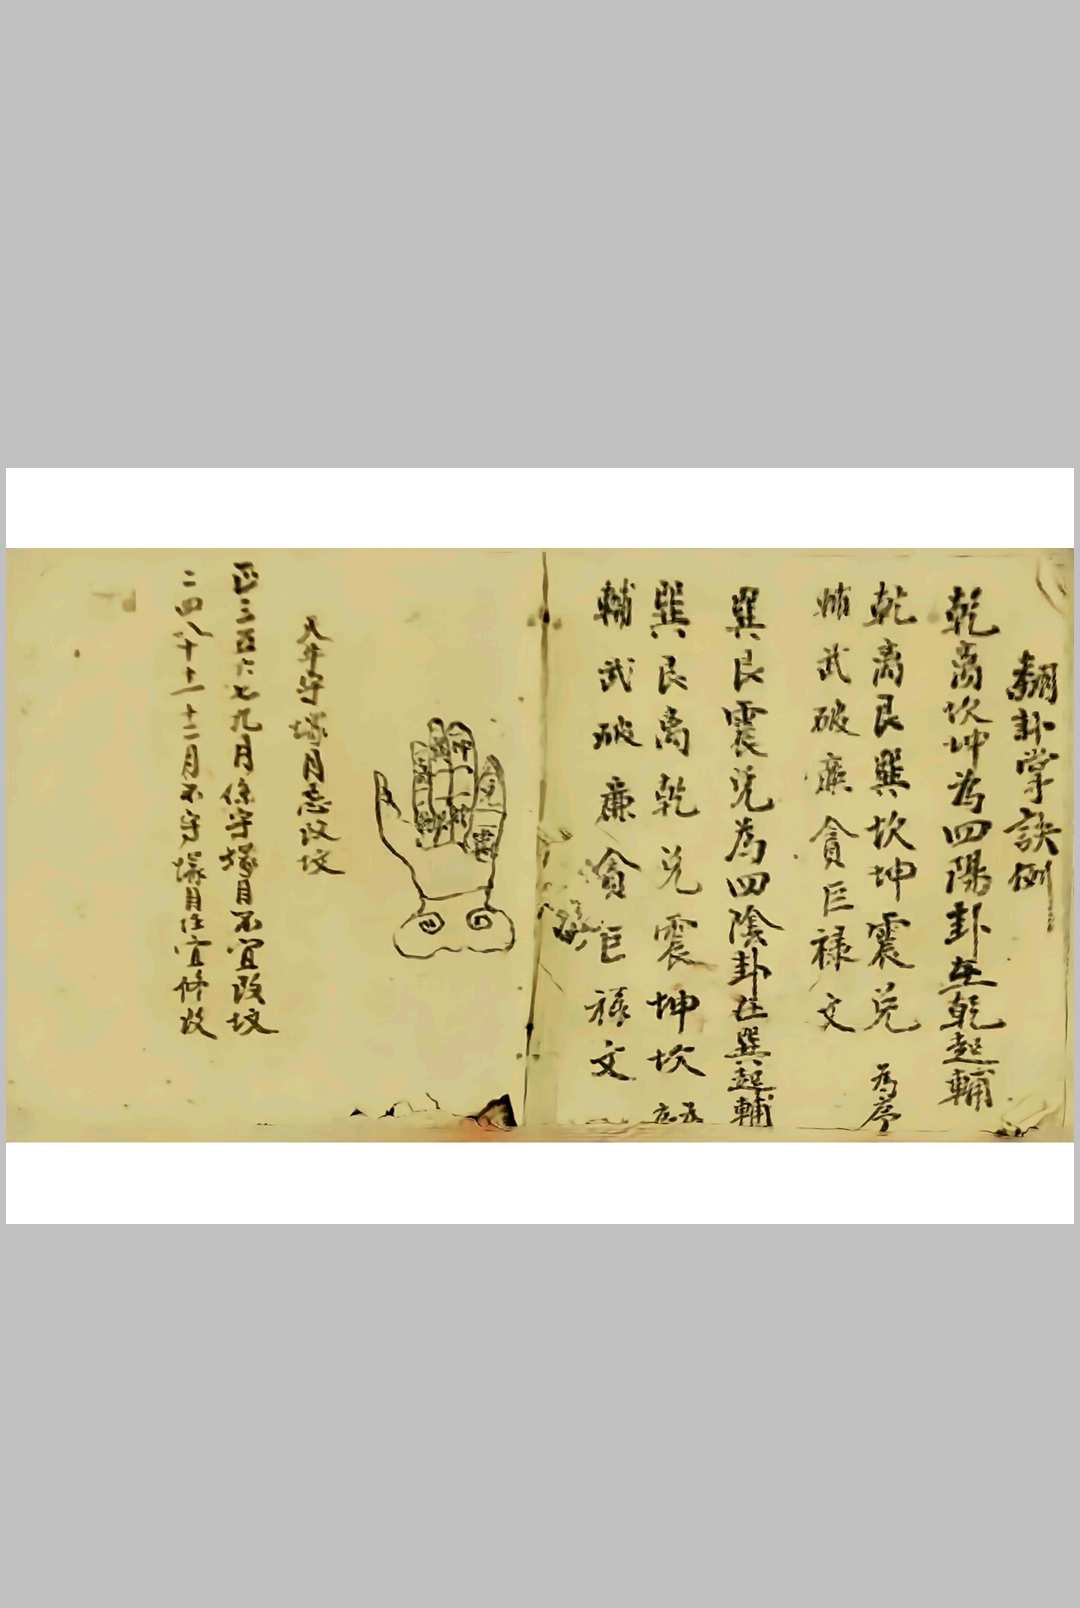 翻卦掌訣例
乾离坎坤為四陽卦在乾起輔
乾离艮巽坎坤震兌 為序
輔武破廉貪巨禄文
巽艮震兌為四陰卦在巽起輔
巽艮离乾兌震坤坎
輔武破廉貪巨禄文
守塚月忌改坟
正三五六七九月係守塚月不宜改坟
二四八十十一十二月不守塚月任宜修改